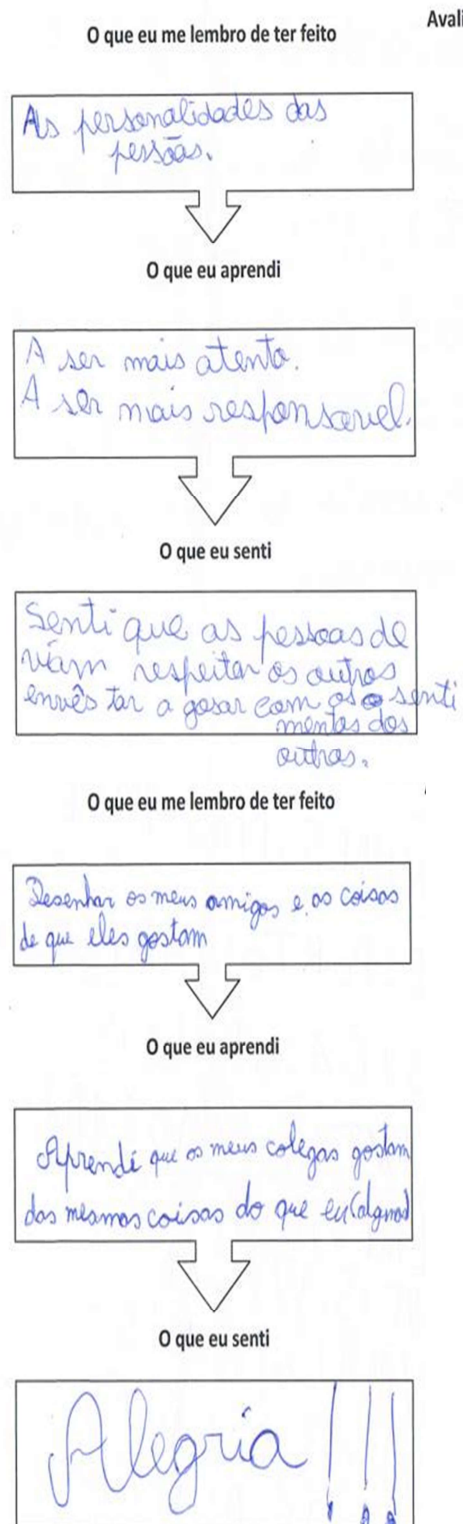 O que eu me lembro de ter feito
Avali
As personalidades das
pessõas.
O que eu aprendi
A ser mais atento.
A ser mais responsavel.
O que eu senti
Senti que as pessoas de
viam respeitar os outros
envês tar a gosar com os senti
mentos dos
outros.
O que eu me lembro de ter feito
Desenhar os meus amigos e as coisas
de que eles gostam
O que eu aprendi
Aprendi que os meus colegas gostam
das mesmas coisas do que eu (algumas)
O que eu senti
Alegria!!!